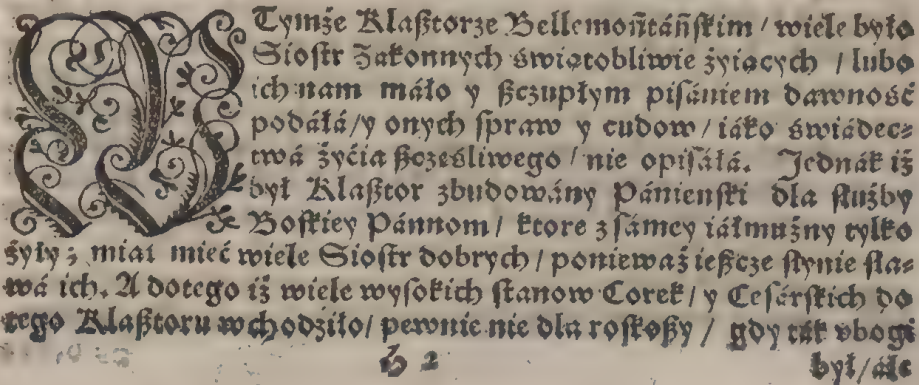 W Tymże Klasztorze Bellemontáńskim / wiele było
Siostr Zakonnych świątobliwie żyiących / lubo
ich nam máło y szczupłym pisániem dawność
podáłá / y onych spraw y cudow / iáko świádec⸗
twá żyćia szcześliwego / nie opisáłá. Jednák iż
był Klasztor zbudowány Pánienski dla służby
Boskiey Pánnom / ktore z sámey iáłmużny tylko
żyły ; miał mieć wiele Siostr dobrych / ponieważ ieszcze słynie sła⸗
wá ich. A dotego iż wiele wysokich stanow Corek / y Cesárskich do
tego Klasztoru wchodziło / pewnie nie dla roskoszy / gdy ták vbogi
h 2
był / ále